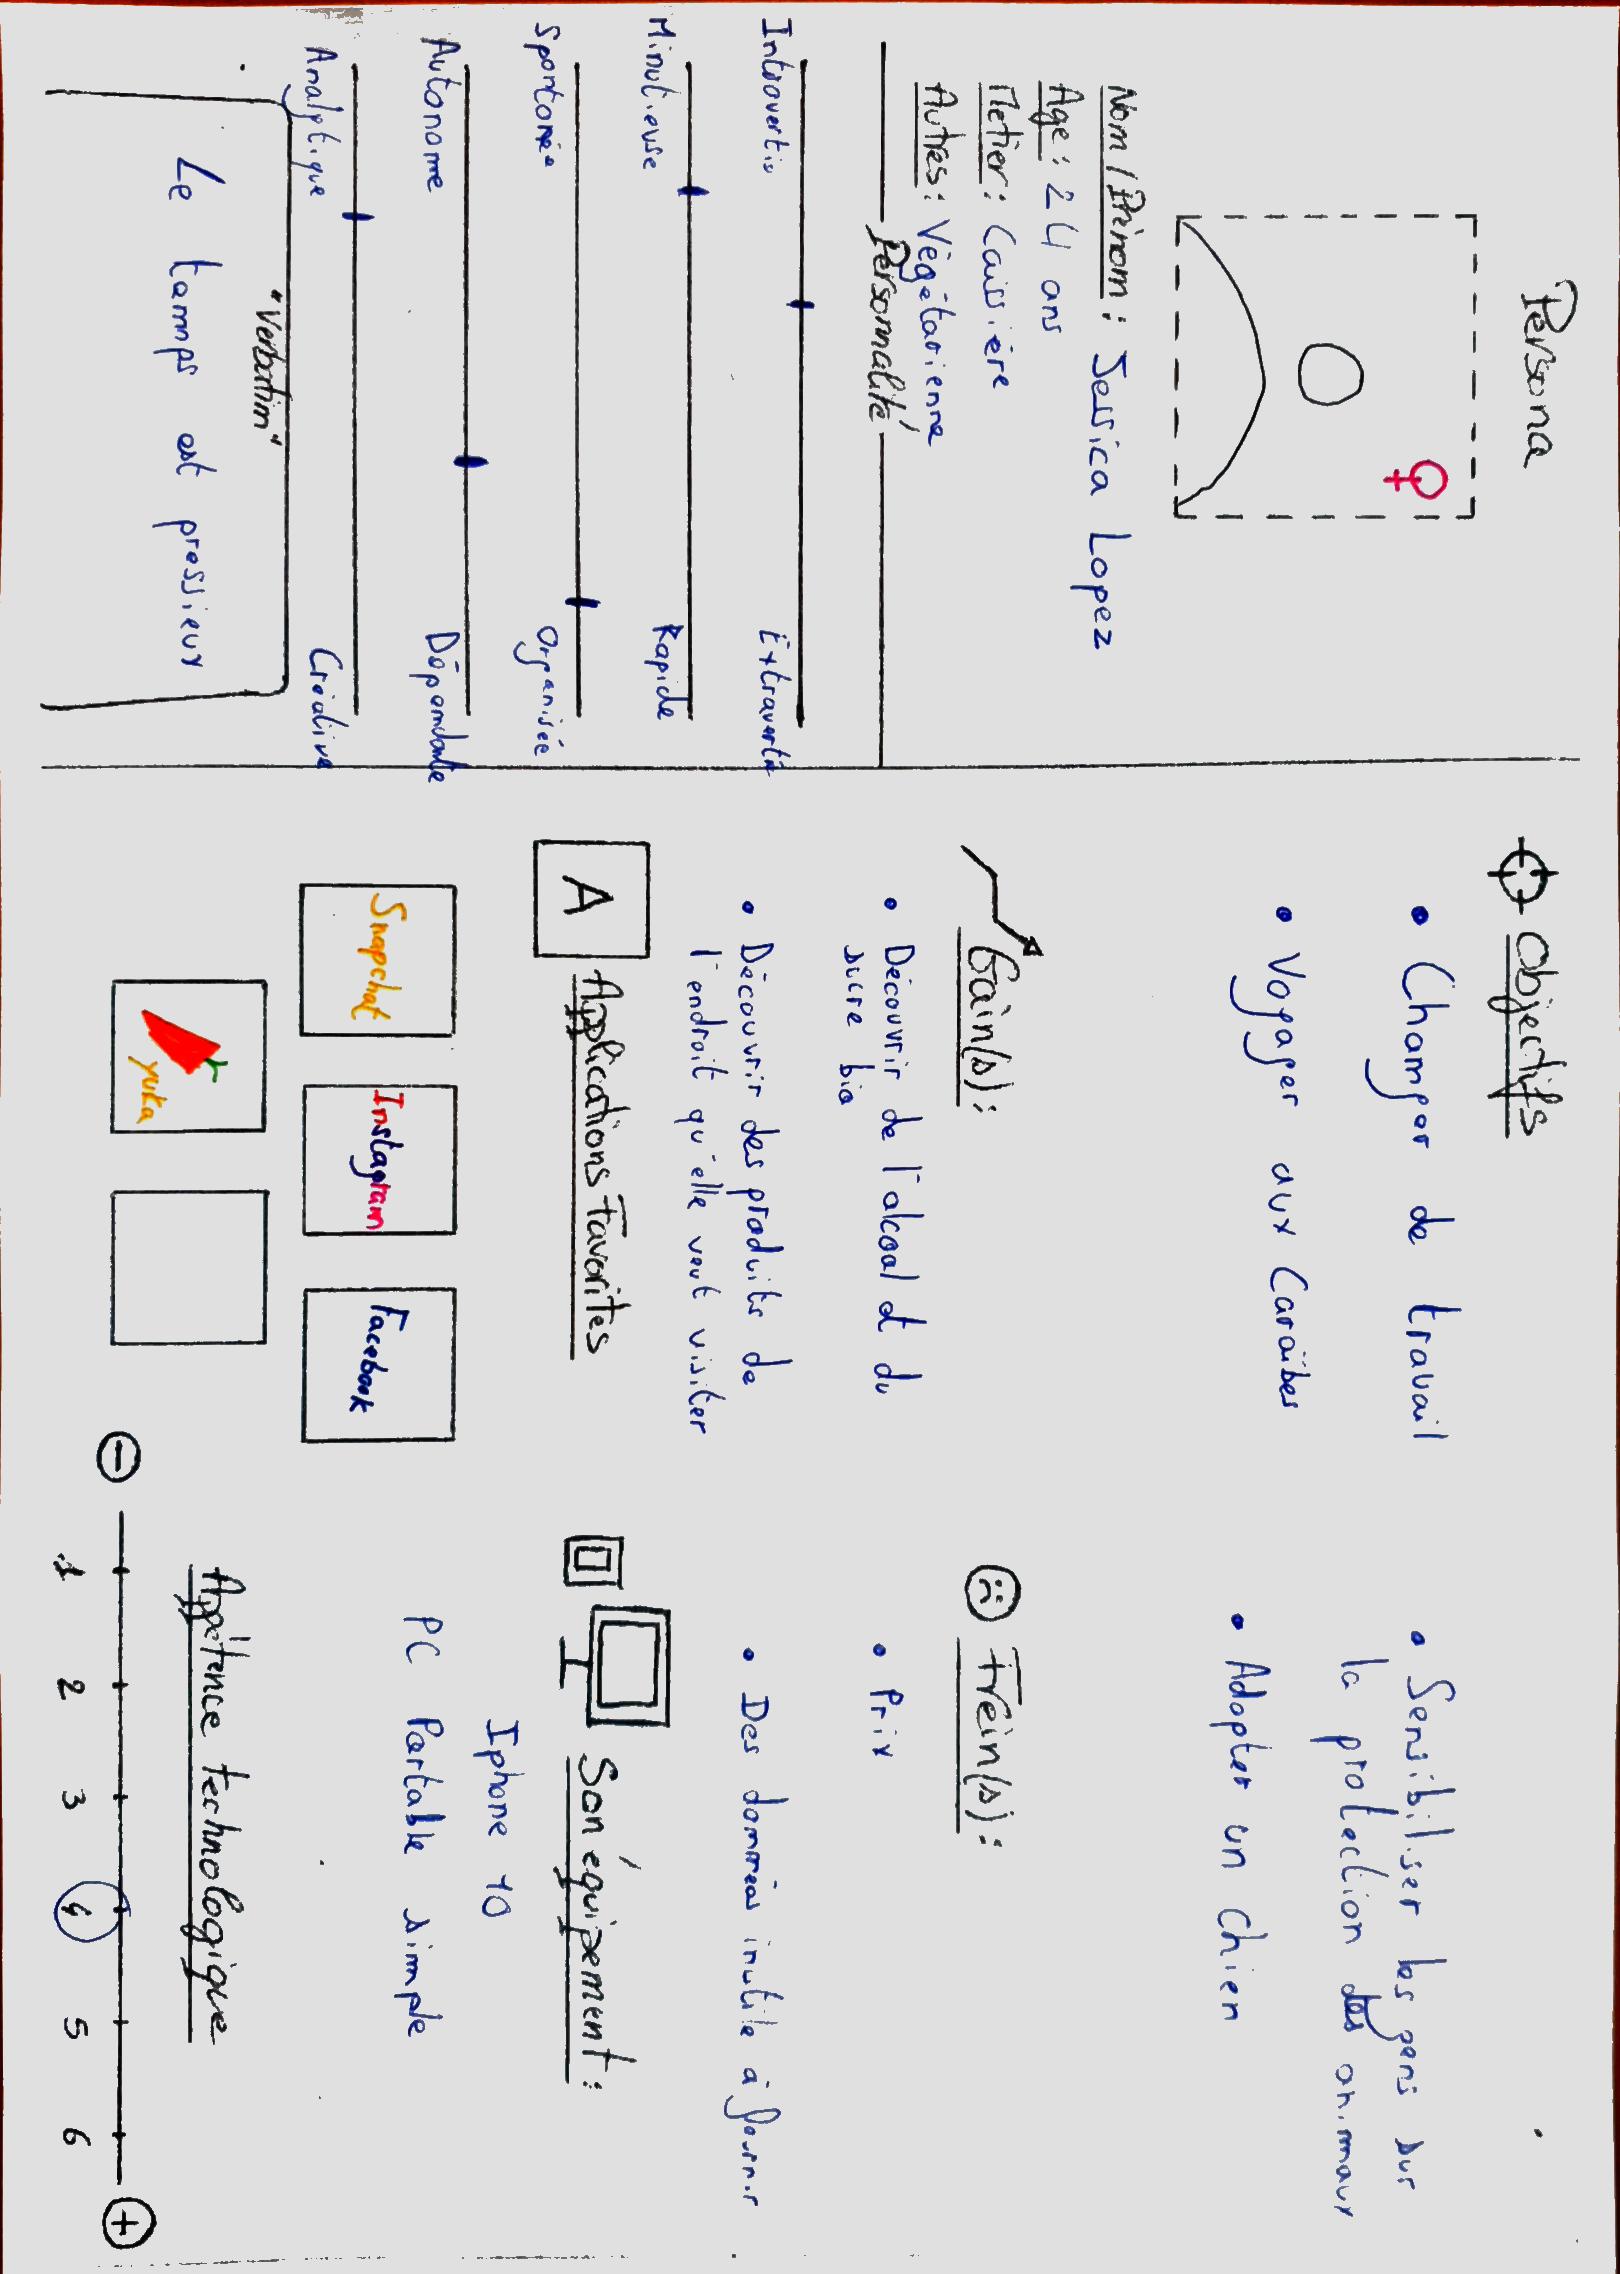 Persona
Nom/Prénom : Jessica Lopez
Age : 24 ans
Métier : Caissière
Autres : Végétarienne
Personnalité
Introvertie Extravertie
Minutieuse Rapide
Spontanée Organisée
Autonome Dépendante
Analytique Créative
"Verbatim"
Le temps est pressieux
Objectifs
• Changer de travail
• Voyager aux Caraïbes
• Sensibiliser les gens sur
la protection des animaux
• Adopter un Chien
Gain(s) :
• Découvrir de l'alcool et du
sucre bio
• Découvrir des produits de
l'endroit qu'elle veut visiter
Frein(s) :
• Prix
• Des données inutile à fournir
A Applications Favorites
Snapchat
Instagram
Facebook
yuka
Son équipement :
Iphone 10
PC Portable simple
Appétence technologique
- 1 2 3 4 5 6 +